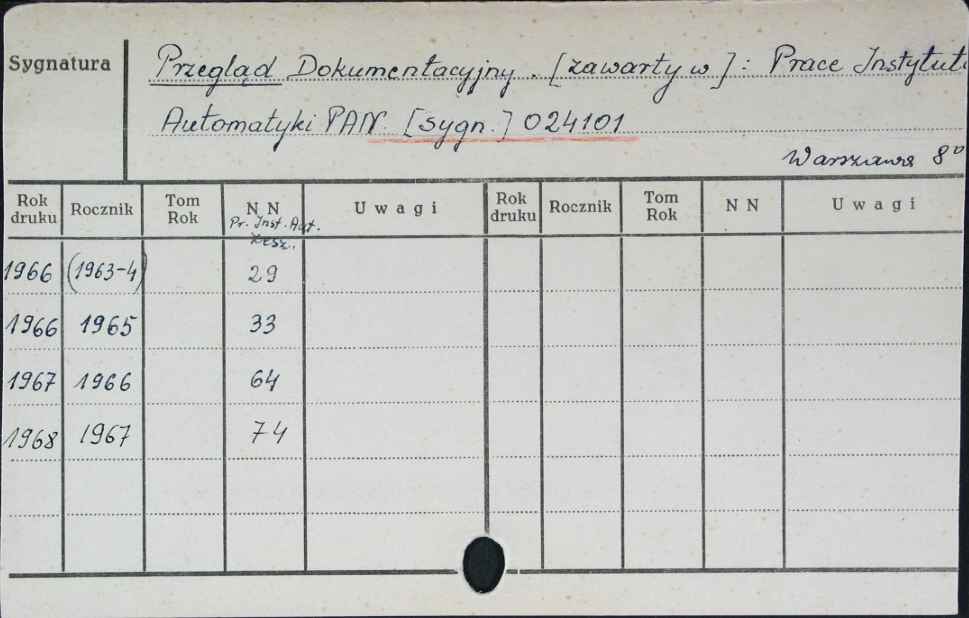 Sygnatura
Przegląd Dokumentacyjny. [zawarty w]: Prace Instytutu
Automatyki PAN. [sygn.] 024101
Warszawa 8°
Rok druku Rocznik Tom Rok N N U w a g i Rok druku Rocznik Tom Rok N N U w a g i
Pr. Inst. Aut.
zesz.
1966 (1963-4) 29
1966 1965 33
1967 1966 64
1968 1967 74